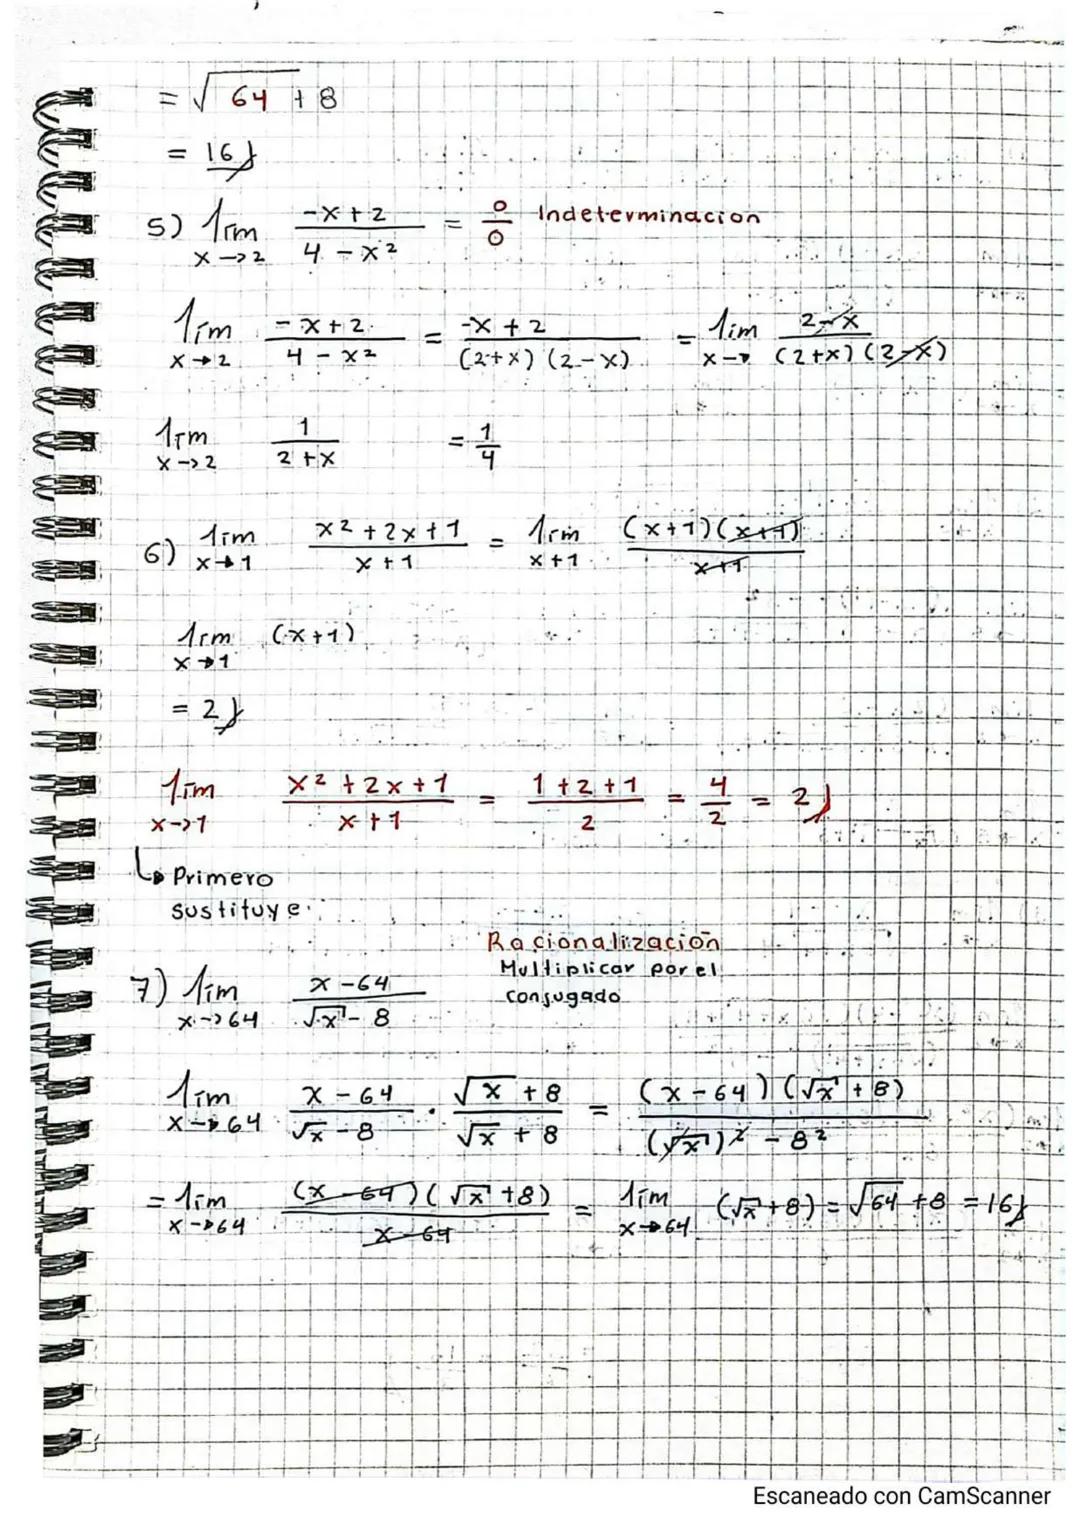 = √64 + 8
= 16
5) lím x→2 (-x + 2)/(4 - x²) = 0/0 Indeterminacion
lím x→2 (-x + 2)/(4 - x²) = (-x + 2)/((2+x)(2-x)) = lím x→ (2-x)/((2+x)(2-x))
lím x→2 1/(2+x) = 1/4
6) lím x→1 (x² + 2x + 1)/(x + 1) = lím x+1 ((x+1)(x+1))/(x+1)
lím x→1 (x+1)
= 2
lím x→1 (x² + 2x + 1)/(x + 1) = (1 + 2 + 1)/2 = 4/2 = 2
↳ Primero
sustituye.
Racionalización
Multiplicar por el
conjugado
7) lím x→64 (x - 64)/(√x - 8)
lím x→64 (x - 64)/(√x - 8) · (√x + 8)/(√x + 8) = ((x - 64)(√x + 8))/((√x)² - 8²)
= lím x→64 ((x - 64)(√x + 8))/(x - 64) = lím x→64 (√x + 8) = √64 + 8 = 16
Escaneado con CamScanner